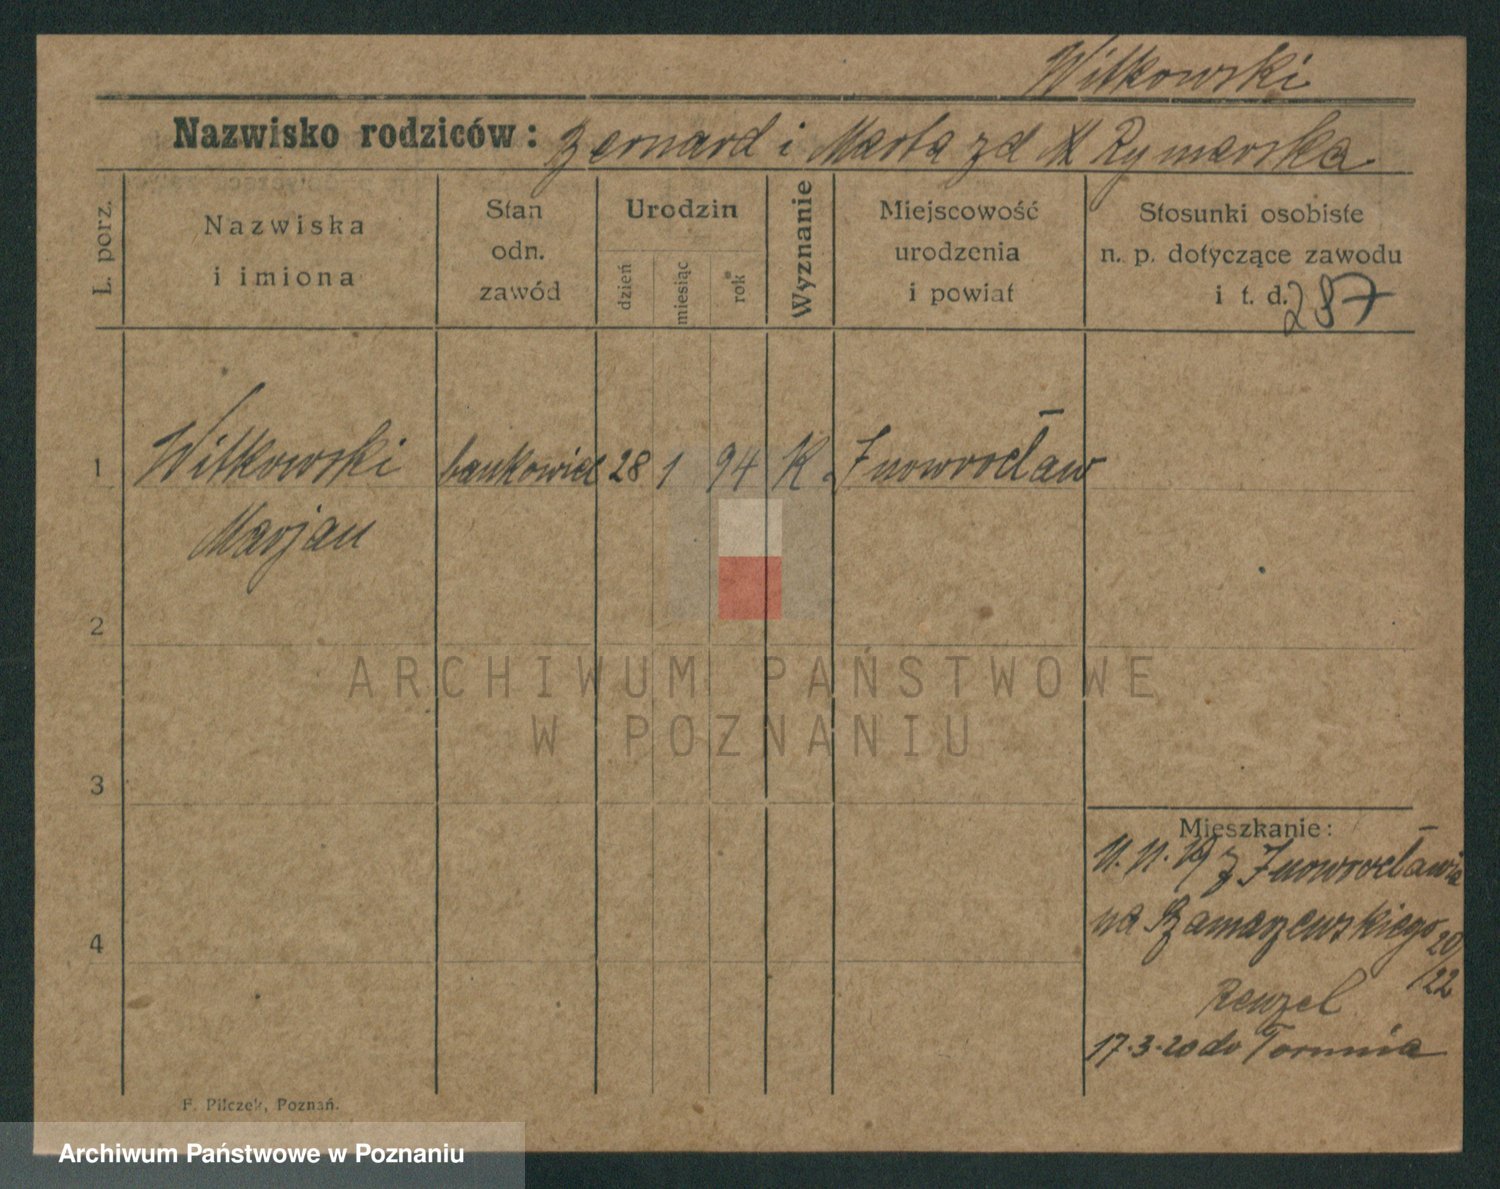 Witkowski
Nazwisko rodziców: Bernard i Marta zd Rymarska
L. porz.
Nazwiska
i imiona
Stan
odn.
zawód
Urodzin
dzień
miesiąc
rok
Wyznanie
Miejscowość
urodzenia
i powiat
Stosunki osobiste
n. p. dotyczące zawodu
i t. d.
287
1 Witkowski bankowiec 28 1 94 K. Inowrocław
Marjan
2
3
4
ARCHIWUM PAŃSTWOWE
W POZNANIU
Mieszkanie:
z Inowrocławia
na Szamarzewskiego 20/22
Renzel
17.3.20 do Torunia
F. Pilczek, Poznań.
Archiwum Państwowe w Poznaniu